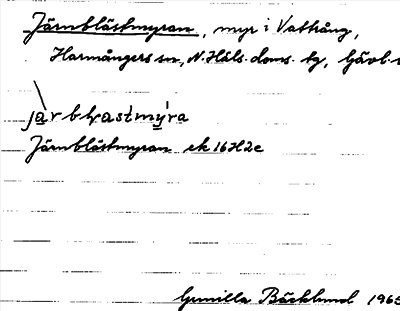 Järnblästmyran, myr i Vattrång,
Harmångers sn, N. Häls. doms. tg, Gävl.
Järnblästmyran ek 16H2c
Gunilla Bäcklund 1965